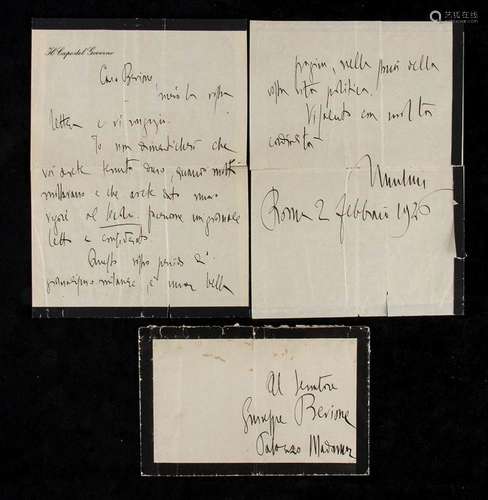 艺狐在线
Il Capo del Governo
Caro Bevione,
ricevo la vostra
lettera e vi ringrazio.
Io non dimenticherò che
voi avete tenuto duro, quando molti
mollavano e che avete dato
vigore al Secolo
letto e considerato.
Questo vostro periodo di
giornalismo milanese è una bella
pagina, nella storia della
vostra vita politica.
Vi saluto con molta
cordialità
Mussolini
Roma 2 febbraio 1926
Al Senatore
Giuseppe Bevione
Palazzo Madama